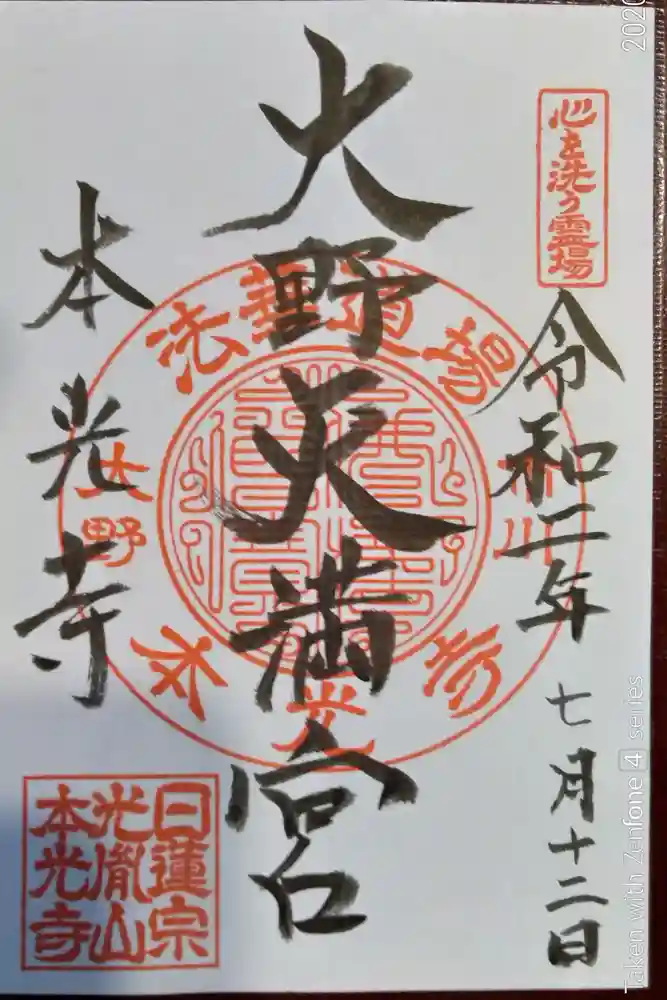 心を洗う霊場
令和二年七月十二日
大野天満宮
本光寺
法華道場
市川
大野
本光寺
日蓮宗
光胤山
本光寺
2020
Taken with Zenfone 4 series